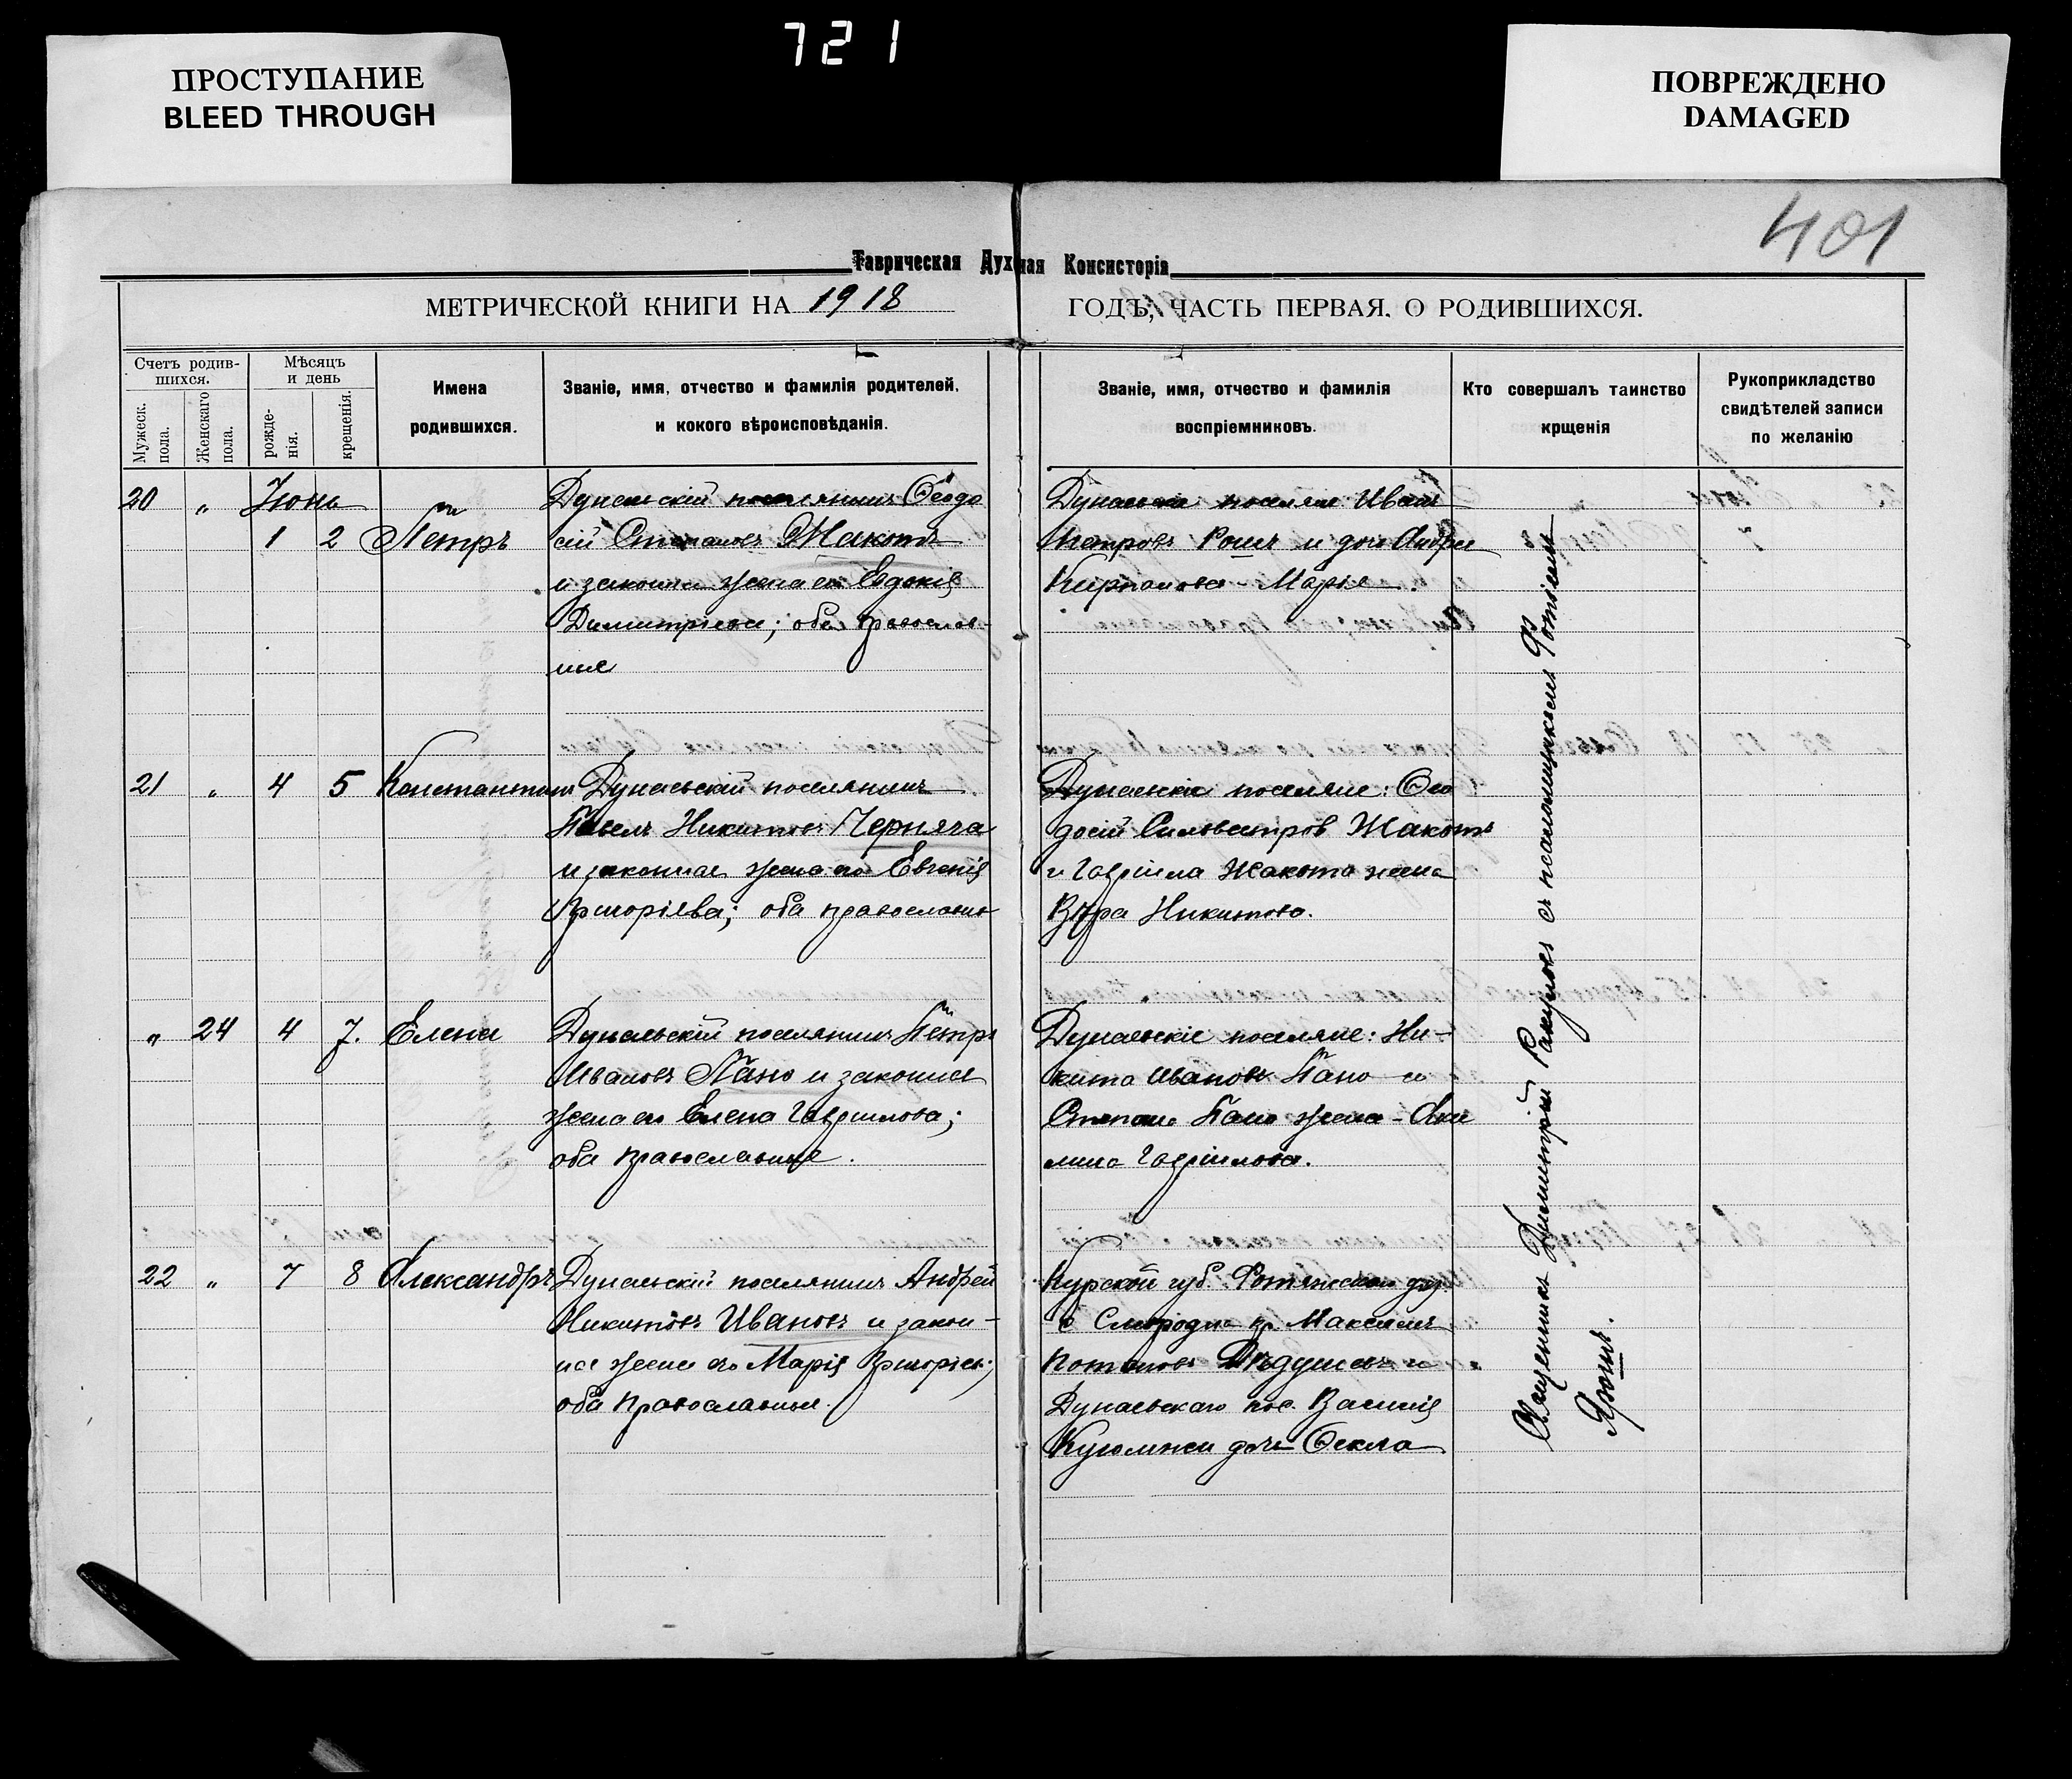 721
ПРОСТУПАНИЕ
BLEED THROUGH
ПОВРЕЖДЕНО
DAMAGED
401
Таврическая Духная Консисторія
МЕТРИЧЕСКОЙ КНИГИ НА 1918 ГОДЪ, ЧАСТЬ ПЕРВАЯ. О РОДИВШИХСЯ.
Счетъ родив-
шихся.
Мужеск.
пола.
Женскаго
пола.
Мѣсяцъ
и день
рожде-
нія.
крещенія.
Имена
родившихся.
Званіе, имя, отчество и фамилія родителей,
и кокого вѣроисповѣданія.
Званіе, имя, отчество и фамилія
воспріемниковъ.
Кто совершалъ таинство
крщенія
Рукоприкладство
свидѣтелей записи
по желанію
20 " Іюнь
1 2 Петръ
Дунаевскій поселянинъ Ѳеодо
сій Степановъ Жакотъ
и законная жена его Евдокія
Димитріева; оба православ-
ные
Дунаевскіе поселяне: Иванъ
Петровъ Рошъ и дочь Андрея
Кирпанова - Марія.
21 " 4 5 Константинъ
Дунаевскій поселянинъ
Павелъ Никитовъ Черняга
и законная жена его Евгенія
Григоріева; оба православные
Дунаевскіе поселяне: Ѳео
досій Сильвестров Жакотъ
и Гавріила Жакота жена
Вѣра Никитова.
" 24 4 7. Елена
Дунаевскій поселянинъ Петръ
Ивановъ Пано и законная
жена его Елена Гавріилова;
оба православные.
Дунаевскіе поселяне: Ни-
кита Ивановъ Пано и
Степана Пано жена -
Гавріилова.
22 " 7 8 Александръ
Дунаевскій поселянинъ Андрей
Никитовъ Ивановъ и закон-
ная жена его Марія Григоріев;
оба православные.
Курской губ.
Максимъ
Потаповъ и
Дунаевскаго пос. Василія
дочь Ѳекла
Священникъ Димитрій съ псаломщикомъ